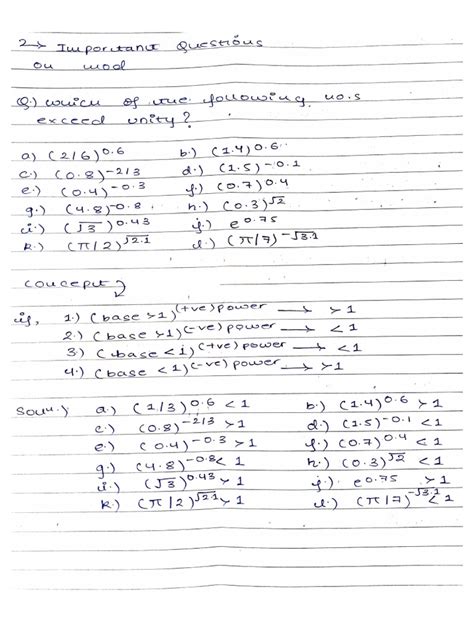 2→ Important Questions
on mod
Q.) which of the following no.s
exceed unity?
a) (2/6)^0.6 b.) (1.4)^0.6
c.) (0.8)^-2/3 d.) (1.5)^-0.1
e.) (0.4)^-0.3 f.) (0.7)^0.4
g.) (4.8)^-0.8 h.) (0.3)^√2
i.) (√3)^0.43 j.) e^0.75
k.) (π/2)^√2.1 l.) (π/7)^-√3.1
concept
if, 1.) (base >1)^(+ve) power → >1
2.) (base >1)^(-ve) power → <1
3) (base <1)^(+ve) power → <1
4.) (base <1)^(-ve) power → >1
Soln.) a.) (1/3)^0.6 <1 b.) (1.4)^0.6 >1
c.) (0.8)^-2/3 >1 d.) (1.5)^-0.1 <1
e.) (0.4)^-0.3 >1 f.) (0.7)^0.4 <1
g.) (4.8)^-0.8 <1 h.) (0.3)^√2 <1
i.) (√3)^0.43 >1 j.) e^0.75 >1
k.) (π/2)^√2.1 >1 l.) (π/7)^-√3.1 <1